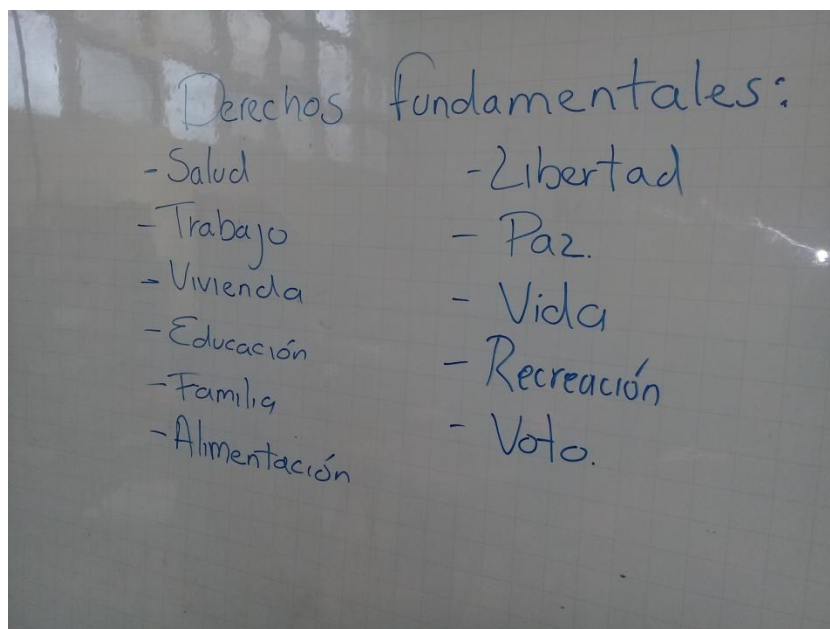 Derechos fundamentales:
- Salud
- Trabajo
- Vivienda
- Educación
- Familia
- Alimentación
- Libertad
- Paz.
- Vida
- Recreación
- Voto.